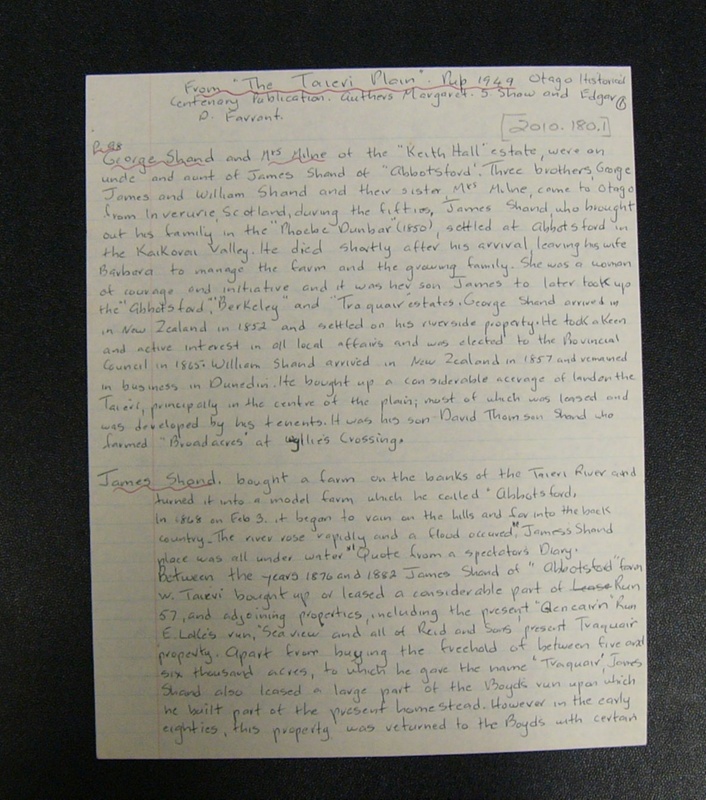 From "The Taieri Plain". Pub 1949 Otago Historical
Centenary Publication. Authers Margaret. S. Shaw and Edgar
D. Farrant.
[2010.180.1]
P. 88
George Shand and Mrs Milne of the "Keith Hall" estate, were an
uncle and aunt of James Shand of "Abbotsford". Three brothers, George
James and William Shand and their sister Mrs Milne, came to Otago
from Inverurie, Scotland, during the fifties, James Shand, who brought
out his family in the "Phoebe Dunbar" (1850), settled at Abbotsford in
the Kaikorai Valley. He died shortly after his arrival, leaving his wife
Barbara to manage the farm and the growing family. She was a woman
of courage and initiative and it was her son James to later took up
the "Abbotsford" "Berkeley" and "Traquair estates. George Shand arrived in
in New Zealand in 1852 and settled on his riverside property. He took a Keen
and active interest in all local affairs and was elected to the Provincial
Council in 1865. William Shand arrived in New Zealand in 1857 and remained
in business in Dunedin. He bought up a considerable acerage of land on the
Taieri, principally in the centre of the plain; most of which was leased and
was developed by his tenents. It was his son David Thomson Shand who
farmed "Broadacres" at Wyllie's Crossing.
James Shand. bought a farm on the banks of the Taieri River and
turned it into a model farm which he called "Abbotsford.
In 1868 on Feb 3. it began to rain on the hills and far into the back
country. The river rose rapidly and a flood occured, "Jamess Shand
place was all under water" Quote from a spectators Diary.
Between the years 1876 and 1882 James Shand of "Abbotsford" farm
W. Taieri bought up or leased a considerable part of Lease Run
57, and adjoining properties, including the present "Glencairn" Run
E. Lake's run, "Sea view and all of Reid and Sons present Traquair
property. Apart from buying the freehold of between five and
six thousand acres, to which he gave the name "Traquair", James
Shand also leased a large part of the Boyds run upon which
he built part of the present homestead. However in the early
eighties, this property was returned to the Boyds with certain